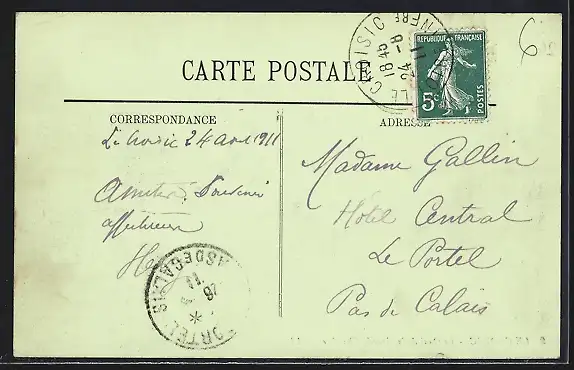 6
CARTE POSTALE
REPUBLIQUE FRANÇAISE
5c
POSTES
LE CROISIC
18 45
24 -8
11
CORRESPONDANCE
ADRESSE
Le Croisic 24 août 1911
Amitiés, Souvenir
affectueux
Madame Gallin
Hotel Central
Le Portel
Pas de Calais
PAS DE CALAIS
11